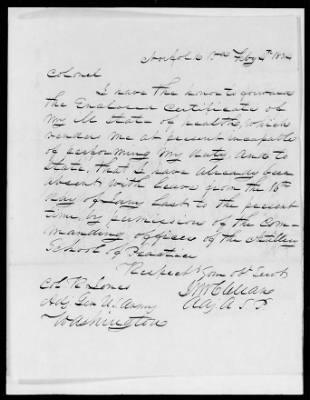 Norfolk Va Feby 4th
Colonel
I have the honor to forward
the Enclosed Certificate of
My Ill State of health, which
renders me at present incapable
of performing My duty and to
State, that I have already been
absent with leave from the 16th
day of Jany last to the present
time, by permission of the Com-
manding officer of the Artillery
School of Practice
Respect. Your obt Servt
Col R Jones
Adj Gen US Army
Washington